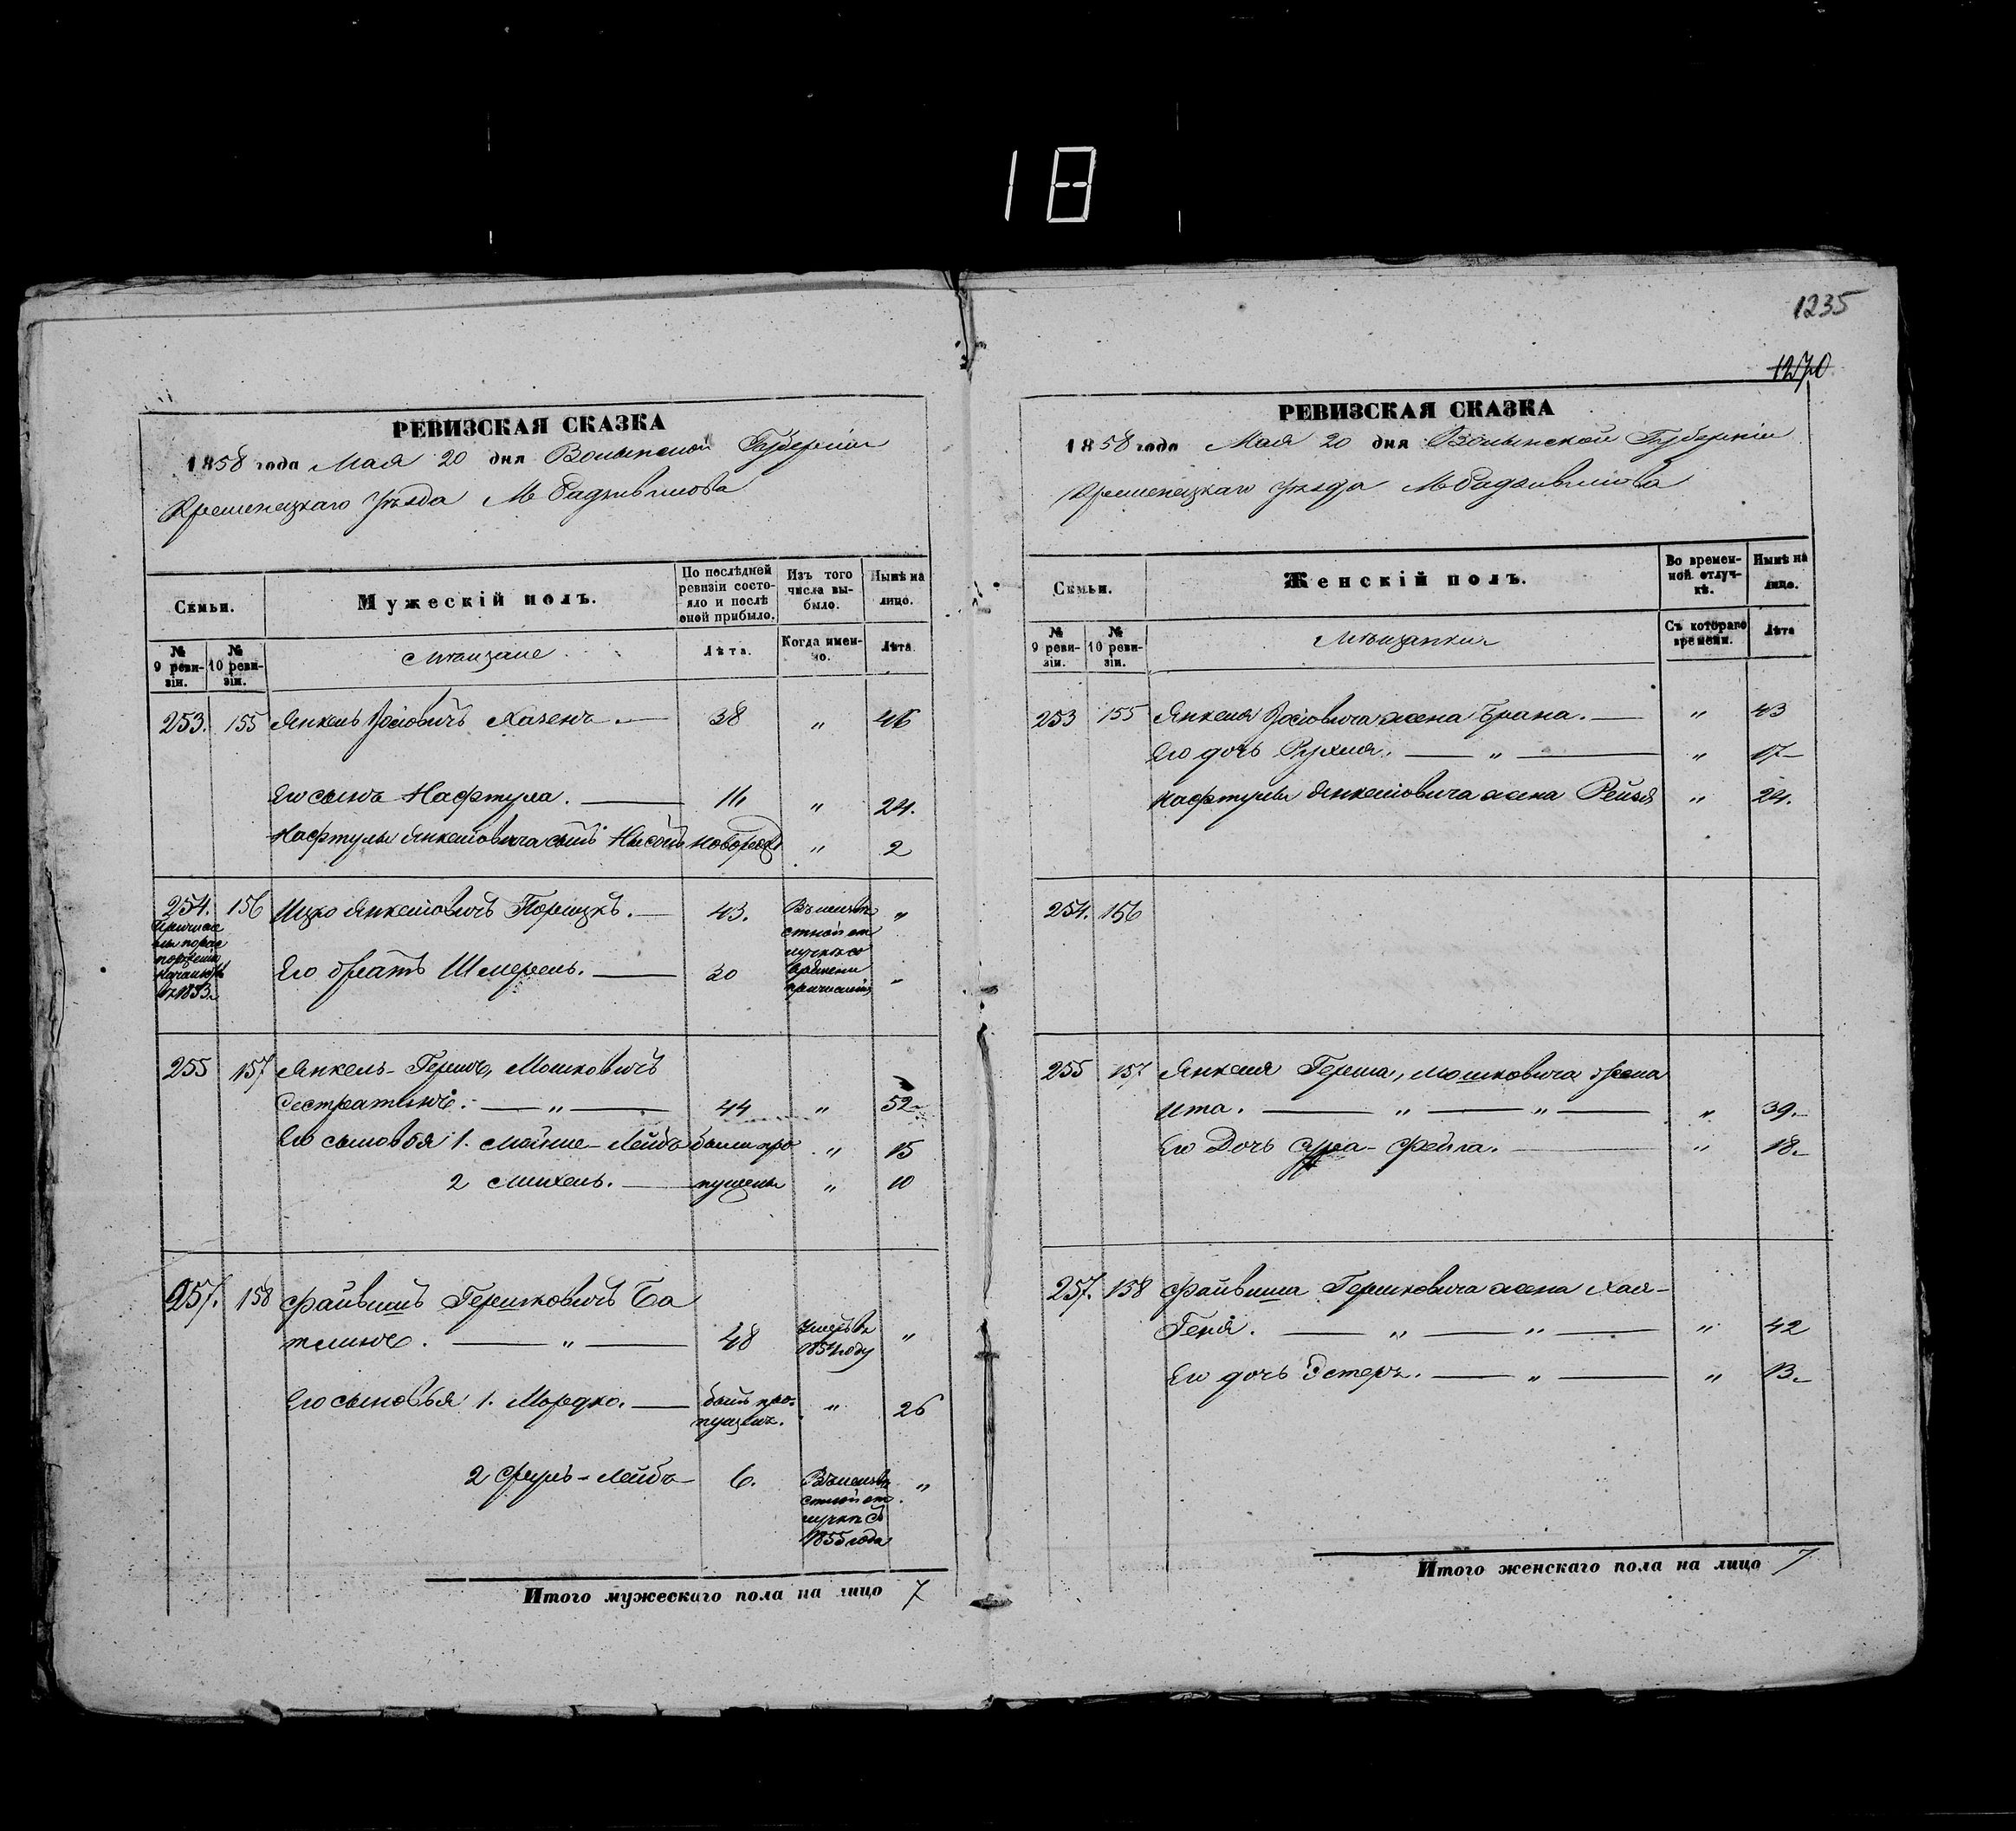 18
1235
1270
РЕВИЗСКАЯ СКАЗКА
1858 года Мая 20 дня Волынской Губерніи
Кременецкаго уѣзда М Радзивилова
Семьи.
Мужескій полъ.
По послѣдней ревизіи состояло и послѣ оной прибыло.
Изъ того числа выбыло.
Нынѣ на лицо.
№ 9 ревизіи.
№ 10 ревизіи.
Мѣщане
Лѣта.
Когда именно.
Лѣта.
253. 155 Янкель Іосіовичъ Хазенъ. — 38 „ 46
Его сынъ Нафтула. — 16 „ 24.
Нафтулы Янкелiовича сынъ новорожд „ 2
254. 156 Ицко Янкелiовичъ Порицкъ. — 43. „
Его братъ Шмерель. — 30 „
въ 1853
Въ неизвѣстной отлучкѣ со времени причисленія
255 157 Янкель-Гершъ, Мошковичъ
— „ — 44 „ 52
Его сыновья 1. Лейбъ были про „ 15
2 Михель. — пущены „ 10
257. 158 Файвишъ Гершковичъ Ба
— „ — 48 Умеръ въ 1854 году „
Его сыновья 1. Мордко. — былъ пропущенъ. „ 26
2 Сруль-Лейбъ — 6. Въ неизвѣстной отлучкѣ съ 1855 года „
Итого мужескаго пола на лицо 7
РЕВИЗСКАЯ СКАЗКА
1858 года Мая 20 дня Волынской Губерніи
Кременецкаго уѣзда М Радзивилова
Семьи.
Женскій полъ.
Во временной отлучкѣ.
Нынѣ на лицо.
№ 9 ревизіи.
№ 10 ревизіи.
Мѣщанки
Съ котораго времени.
Лѣта
253 155 Янкеля Іосіовича жена Брана. — „ 43
Его дочь Рухля. — „ — „ 17
Нафтулы Янкелiовича жена Рейзя „ 24.
254. 156
255 157 Янкеля Герша, Мошковича жена
Ита. — „ — „ — „ 39.
Его Дочь Сура-Фейга. — „ 18.
257. 158 Файвиша Гершковича жена Хая-
Геня. — „ — „ — „ 42
Его дочь Эстеръ. — „ — „ 13.
Итого женскаго пола на лицо 7